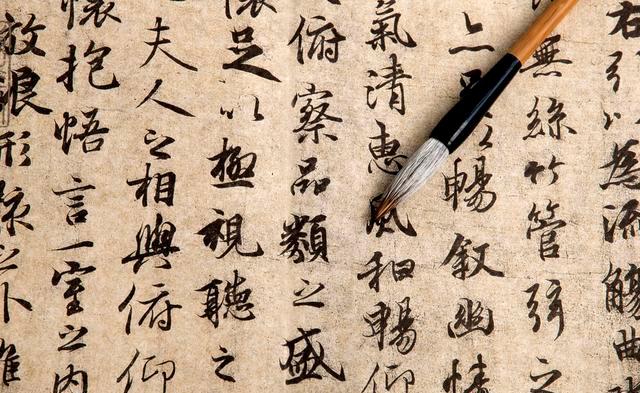 右以為流觴曲水
無絲竹管弦之
足以暢叙幽情
氣清惠風和暢仰
俯察品類之盛
懷足以極視聽之
夫人之相與俯仰
懷抱悟言一室之内
放浪形骸之外雖